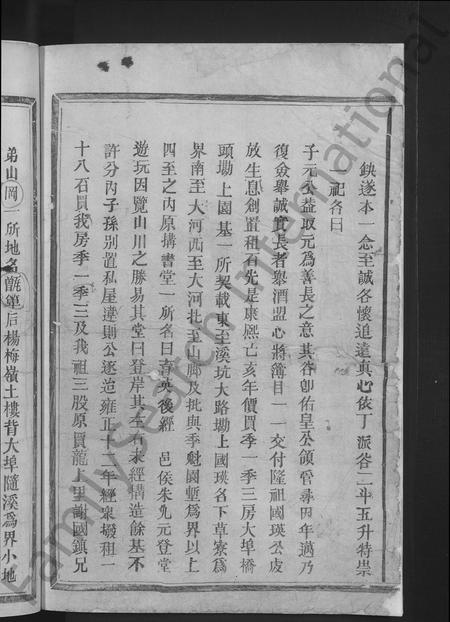 鈌遂本一念至誠各懷追遠真心依丁派谷二斗五升特祟
一祀各曰
子元公益取元為善長之意其谷卽佑皇公領管尋因年邁乃
復僉舉誠實長者舉酒盟心將簿目一一交付隆祖國瑛公處
放生息創置租石先是康熙丁亥年價買季一季三房大埠橋
頭墈上園基一所契載東至溪坑大路墈上國瑛名下草寮為
界南至大河西至大河北至山脚及批與季魁園塹為界以上
四至之內原搆書堂一所名曰育英後經 邑侯朱先元登堂
遊玩因覽山川之勝易其堂曰登岸其左右未經構造餘基不
許分內子孫别置私屋違則公逐迨雍正十二年經衆撥租一
十八石買我房季一季三及我祖三股原買龍上里謝國鎮兄
弟山岡一所地名 后楊梅嶺土樓背大埠隨溪為界小地
FamilySearch International